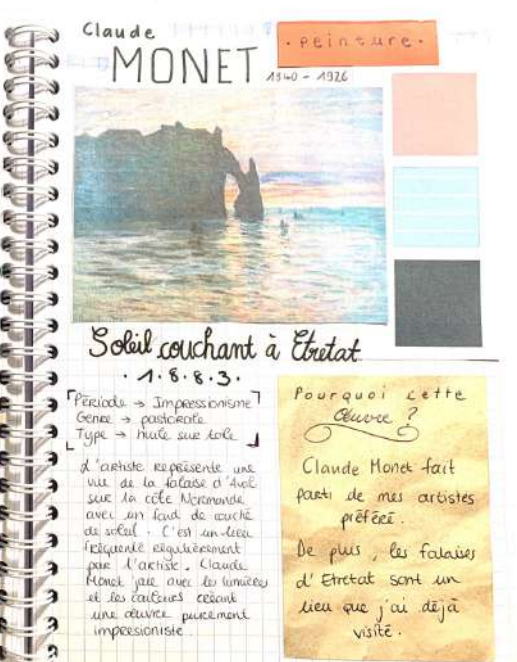 Claude
MONET
· peinture ·
1840 - 1926
Soleil couchant à Etretat
· 1 · 8 · 8 · 3 ·
Période → Impressionisme
Genre → pastorale
Type → huile sur toile
L'artiste représente une
vue de la falaise d'Aval
sur la côte Normande
avec un fond de couché
de soleil. C'est un lieu
fréquenté régulièrement
par l'artiste. Claude
Monet joue avec les lumières
et les couleurs créant
une œuvre purement
impressioniste.
Pourquoi cette
Œuvre ?
Claude Monet fait
parti de mes artistes
préféré.
De plus, les falaises
d'Etretat sont un
lieu que j'ai déjà
visité.